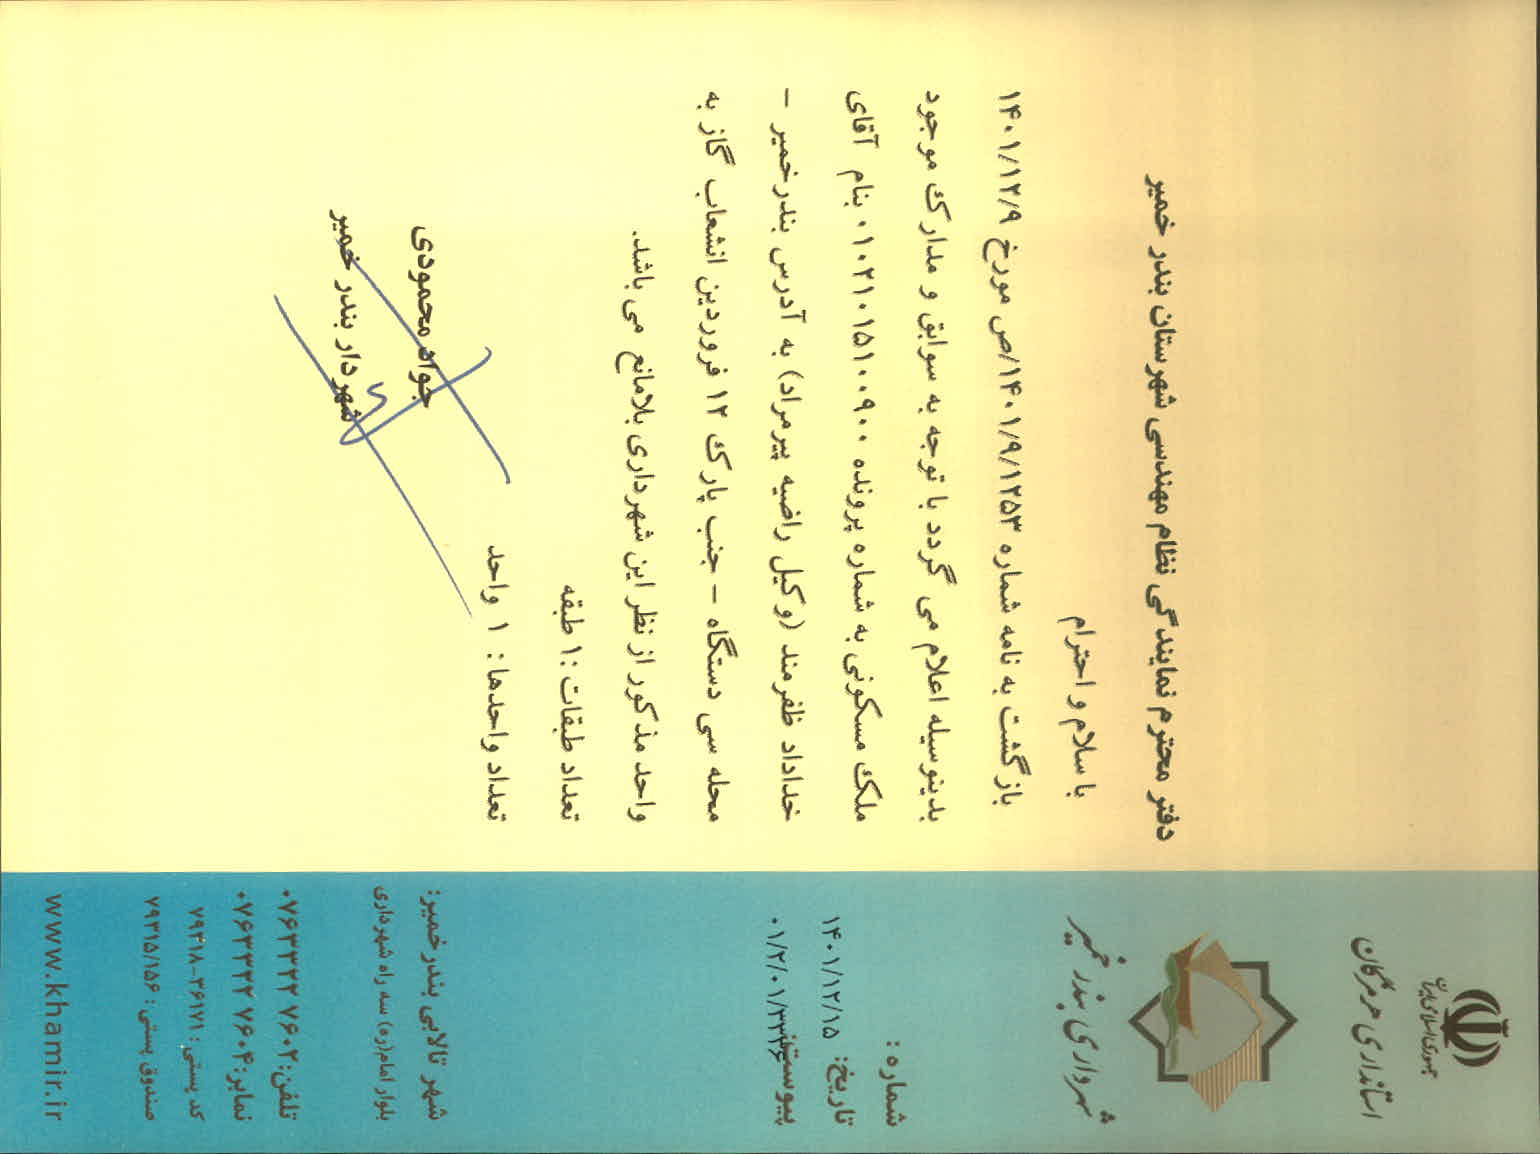 جمهوری اسلامی ایران
استانداری هرمزگان
شهرداری بندر خمیر
شماره :
تاریخ: ۱۴۰۱/۱۲/۱۵
پیوست:
۰۱/۲/۰۱/۳۳۴۶
شهر تالابی بندرخمیر:
بلوار امام(ره) سه راه شهرداری
تلفن: ۰۷۶۳۳۲۲ ۷۶۰۲
نمابر: ۰۷۶۳۳۲۲ ۷۶۰۴
کد پستی: ۳۶۱۷۱-۷۹۳۱۸
صندوق پستی: ۷۹۳۱۵/۱۵۶
www.khamir.ir
دفتر محترم نمایندگی نظام مهندسی شهرستان بندر خمیر
با سلام و احترام
بازگشت به نامه شماره ۱۴۰۱/۹/۱۲۵۳/ص مورخ ۱۴۰۱/۱۲/۹
بدینوسیله اعلام می گردد با توجه به سوابق و مدارک موجود
ملک مسکونی به شماره پرونده ۰۱۰۲۱۰۱۵۱۰۰۹۰۰ بنام آقای
خداداد ظفرمند (وکیل راضیه پیرمراد) به آدرس بندرخمیر –
محله سی دستگاه – جنب پارک ۱۲ فروردین انشعاب گاز به
واحد مذکور از نظر این شهرداری بلامانع می باشد.
تعداد طبقات :۱ طبقه
تعداد واحدها: ۱ واحد
جواد محمودی
شهردار بندر خمیر